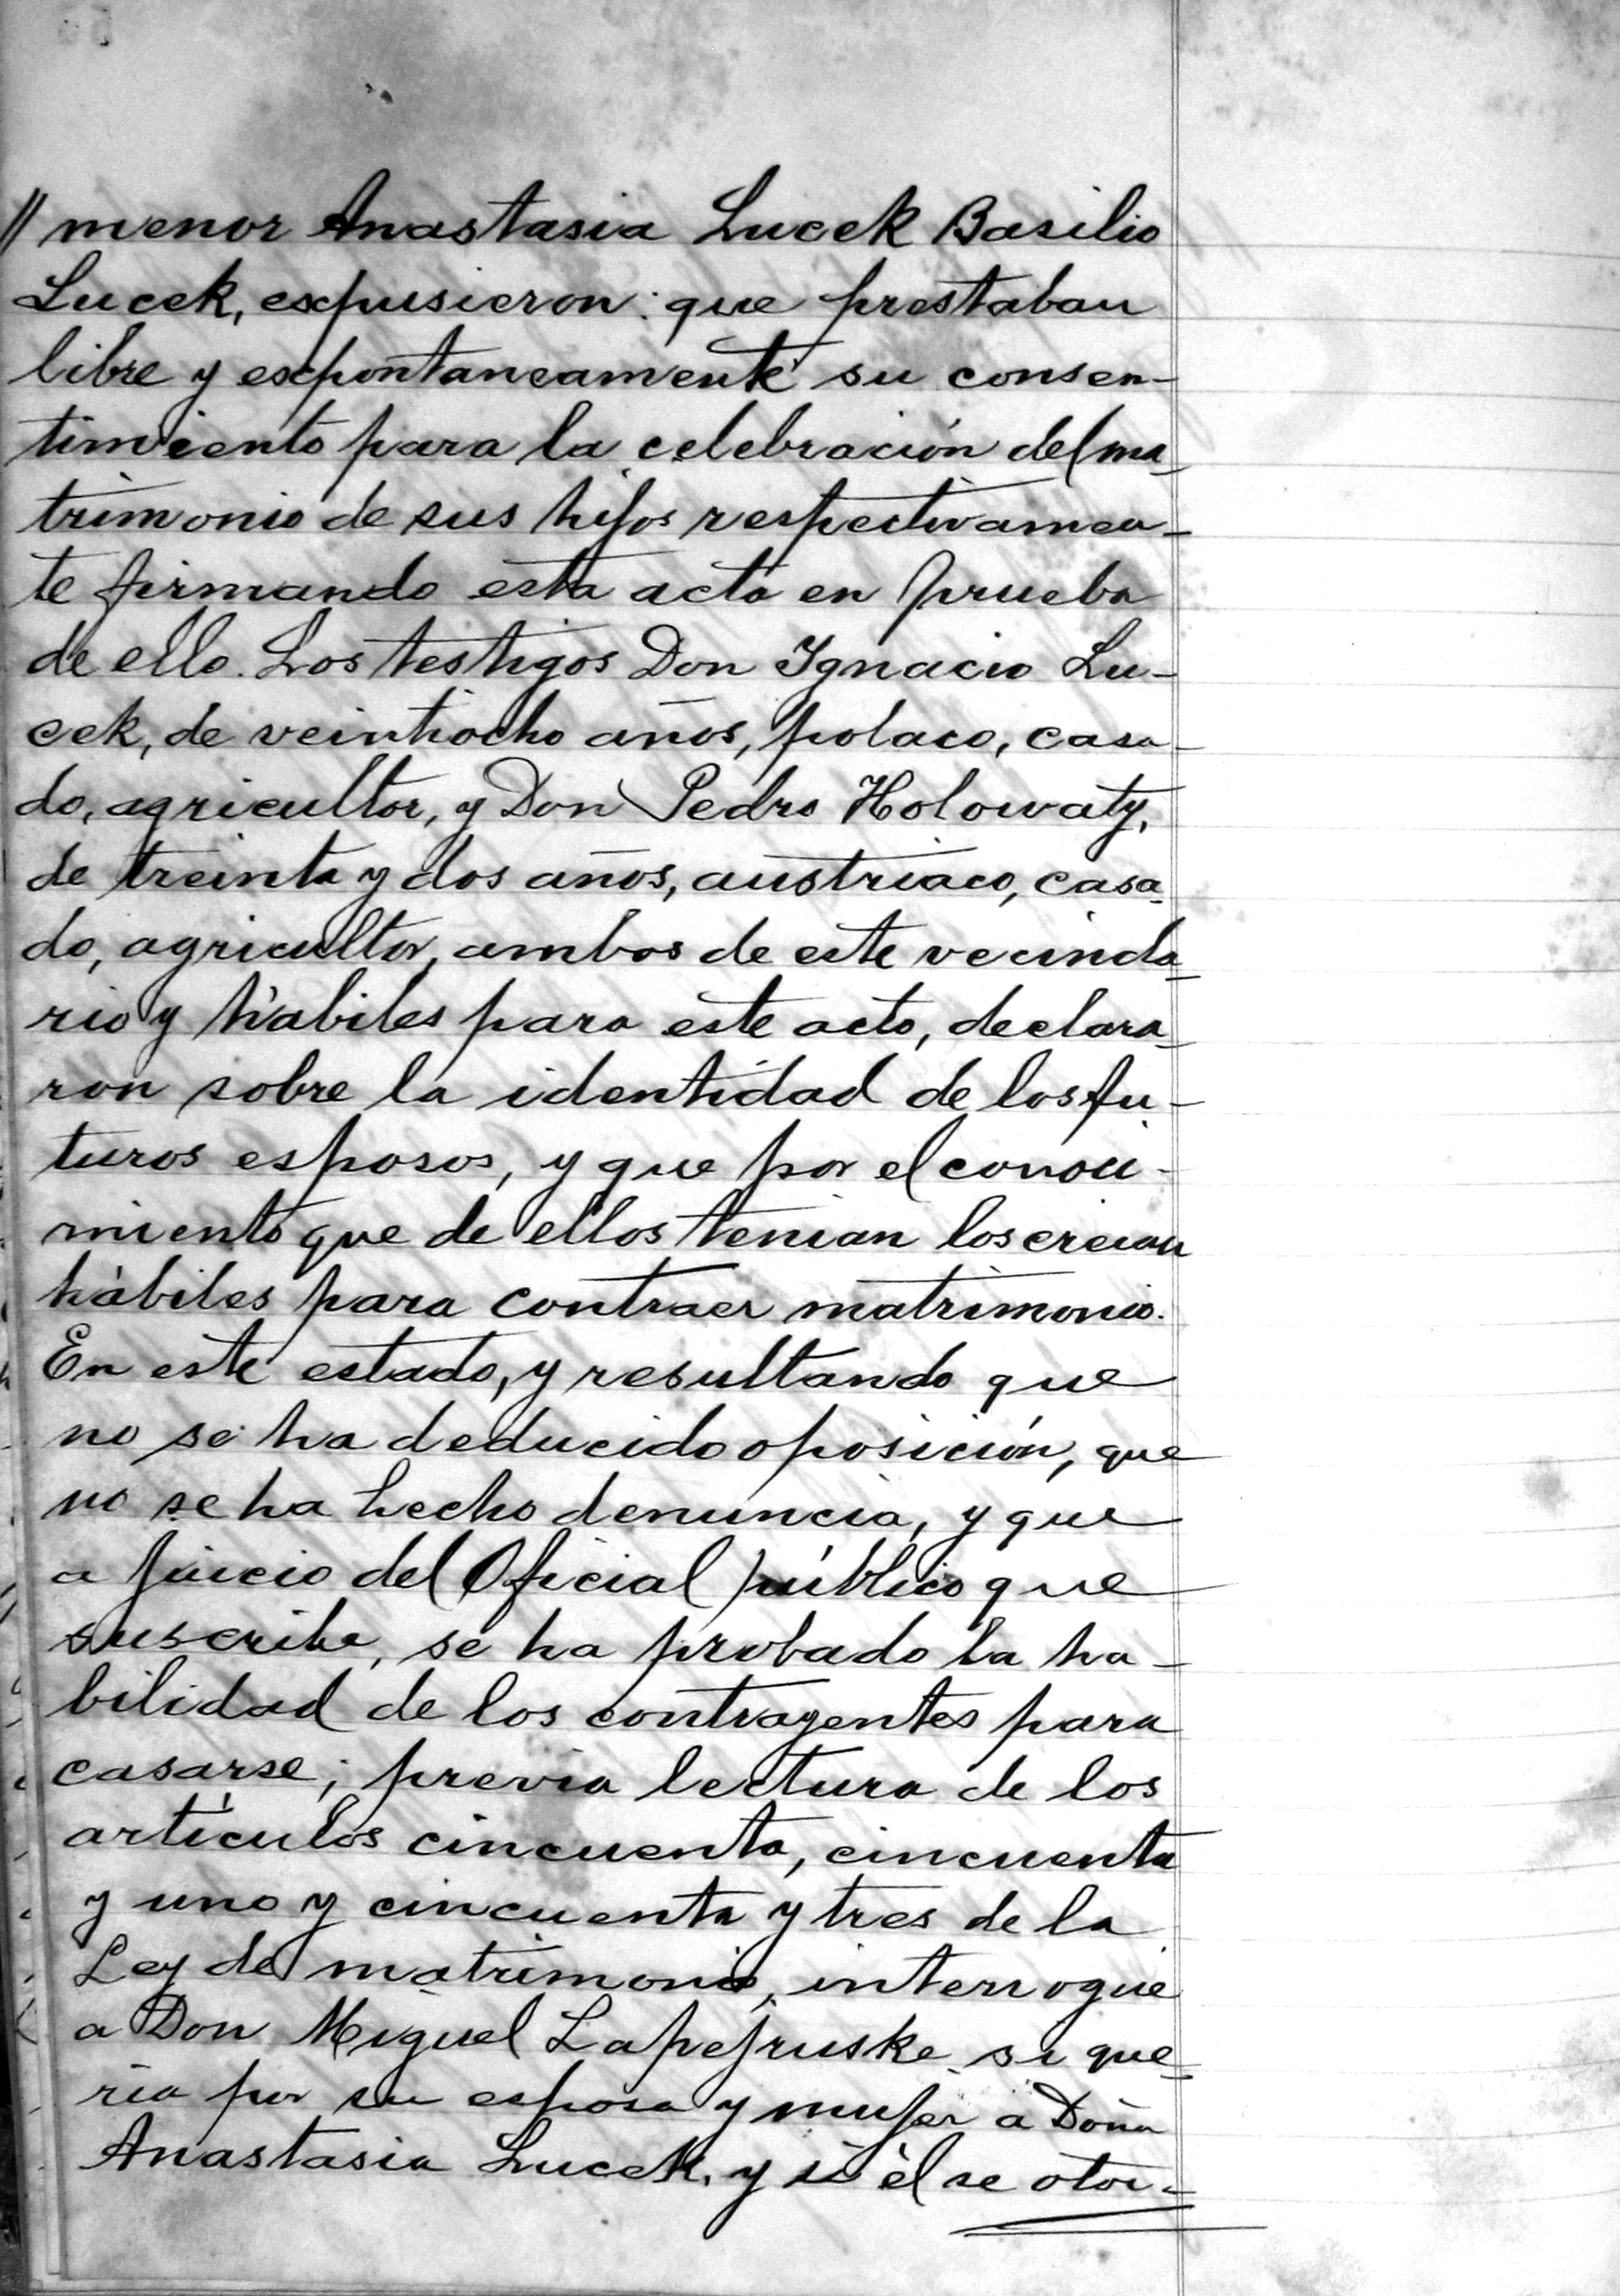 // menor Anastasia Lucek Basilio
Lucek, expusieron: que prestaban
libre y expontaneamente su consen-
timiento para la celebración del ma-
trimonio de sus hijos respectivamen-
te firmando esta acta en prueba
de ello. Los testigos Don Ignacio Lu-
cek, de veintiocho años, polaco, casa-
do, agricultor, y Don Pedro Holowaty,
de treinta y dos años, austriaco, casa-
do, agricultor, ambos de este vecinda-
rio y hábiles para este acto, declara-
ron sobre la identidad de los fu-
turos esposos, y que por el conoci-
miento que de ellos tenian los creian
hábiles para contraer matrimonio.
En este estado, y resultando que
no se ha deducido oposición, que
no se ha hecho denuncia, y que
a juicio del Oficial público que
suscribe, se ha probado la ha-
bilidad de los contrayentes para
casarse; previa lectura de los
artículos cincuenta, cincuenta
y uno y cincuenta y tres de la
Ley de matrimonio, interrogué
a Don Miguel Lapejruske si que-
ria por su esposa y mujer a Doña
Anastasia Lucek, y si él se otor-